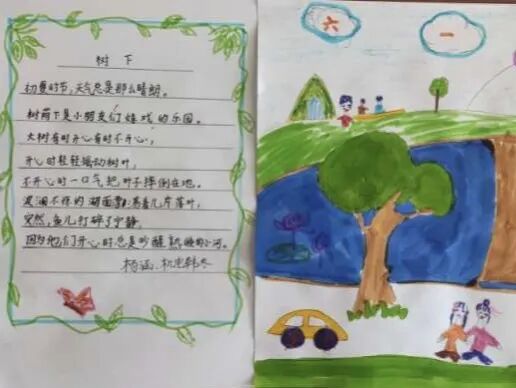 树 下
初夏时节,天气总是那么晴朗。
树荫下是小朋友们嬉戏的乐园。
大树有时开心有时不开心,
开心时轻轻摇动树叶,
不开心时一口气把叶子摔倒在地。
波澜不惊的湖面飘荡着几片落叶,
突然,鱼儿打碎了宁静,
因为他们开心时总是吵醒熟睡的小河。
杨涵
六 一